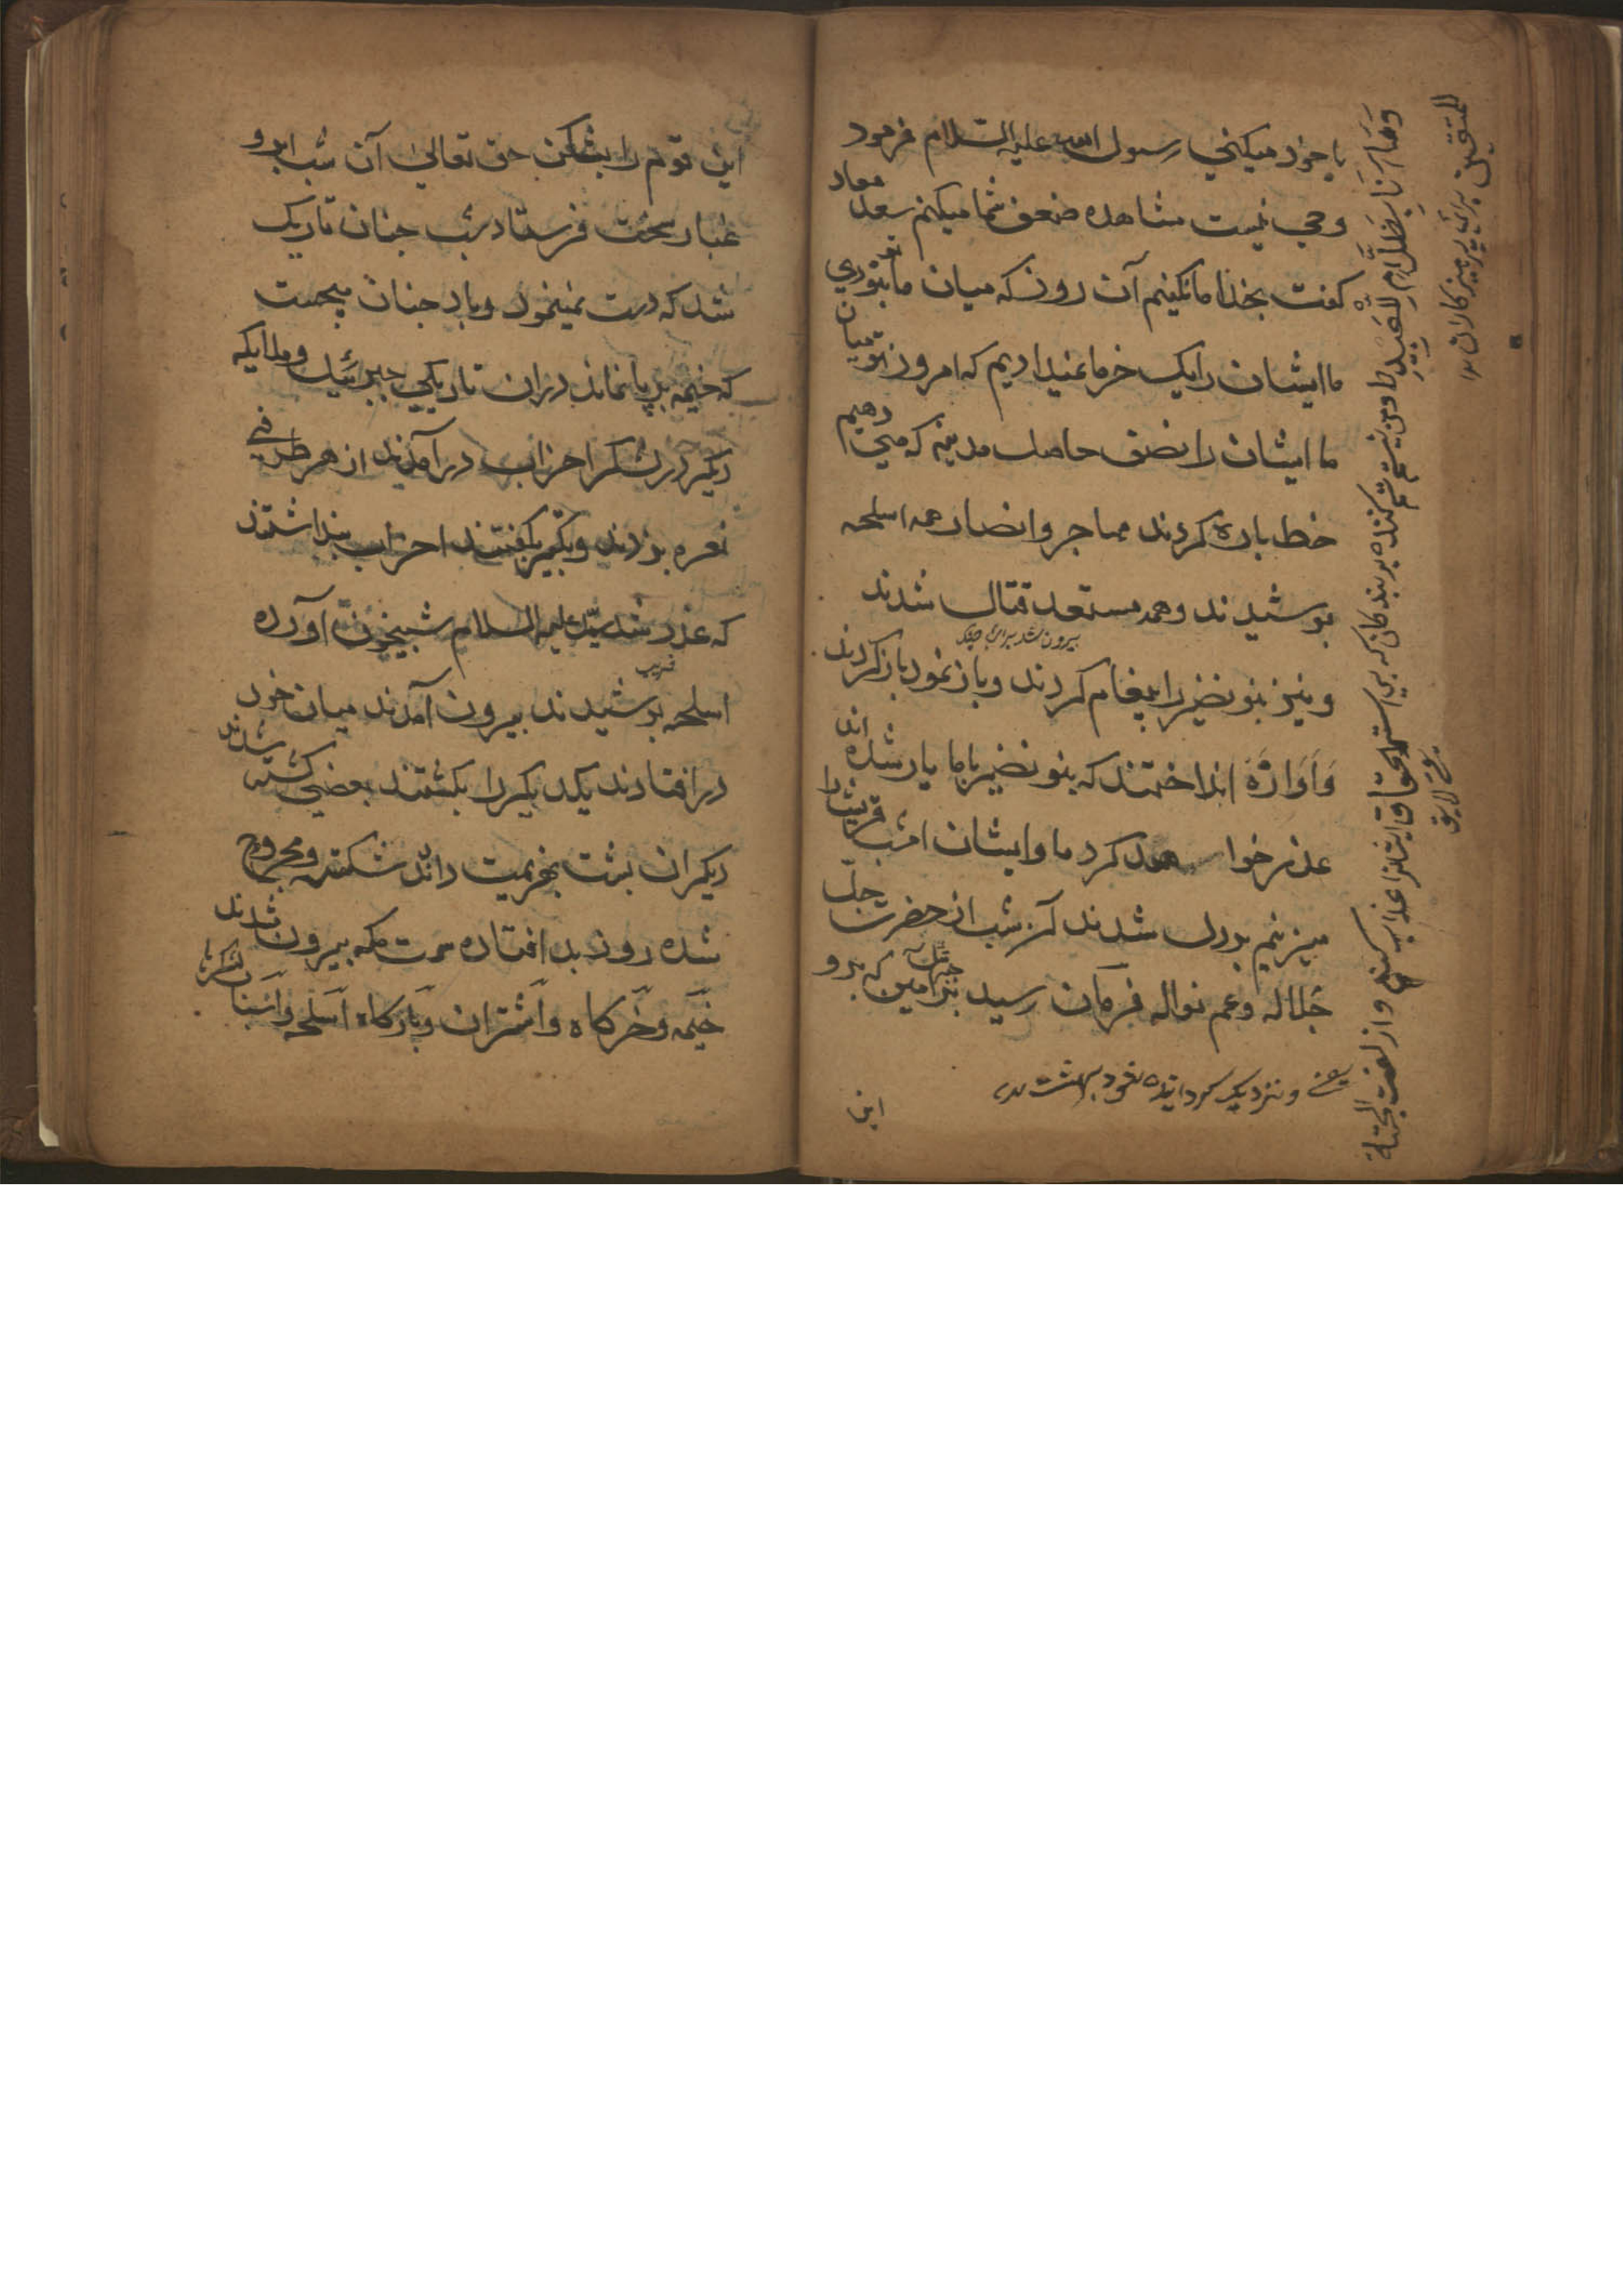 یا خود میکنی رسول الله علیه السلام فرمود
وحی نیست مشاهده ضعف شما میکنم سعد معاد
کفت بخدا ما نکنیم آن روز که میان ما نبودی
ما ایشان را یک خرما نمیدادیم که امروز تو میان
ما ایشان را نصف حاصل مدینه که می دهیم
خط باره کردند مهاجر وانصار همه اسلحه
بوشیدند وهمه مستعد قتال شدند
بیرون شد برای جنک
ونیز بنو نضیر را پیغام کردند وباز نمود باز کردند
وَاَوَازَهَ انداختند که بنو نضیر باما یار شده اند
عذر خوا کرد ما وایشان امشب قریش را
میزنیم بدرل شدند آن شب از حضرت جل
جلاله وعم نواله فرمان رسید جبرئیل امین که برو
ونزدیک کردانیده شود بهشت
این
وَمَا اَنَا بِظَلَّامٍ لِلْعَبِیْدِ ومن نیستم ستم کننده بر بندکان که بی استحقاق ایشانرا عذاب کنم وازلفت الجنة
للمتقین برای پرهیزکاران
این قوم را بشکن حق تعالی آن شب ابر و
غبار سخت فرستاد شب جنان تاریک
شد که دست نمینمود وباد جنان میجست
که خیمه بر پا نماند دران تاریکی جبرئیل وملایکه
دیکر در لشکر احزاب درآمدند از هر طرفی
نعره بزدند وتکبیر بکفتند احزاب بنداشتند
که غدر شد سید علیه السلام شبیخون آورده
فریب
اسلحه بوشیدند بیرون آمدند میان خود
در افتادند یکدیکر را بکشتند بعضی کشته شدند
دیکران بشت بهزیمت دادند شکسته ومجروح
شده روز بد افتاده سمت مکه بیرون شدند
خیمه وخرکاه واشتران وبارکاه اسلحه واسبان